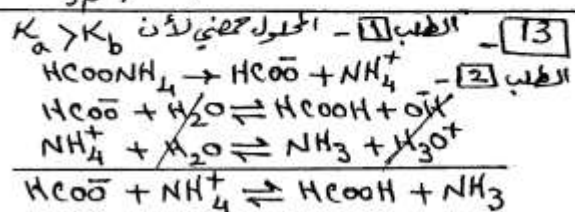 13 - الطلب 1 - المحلول حمضي لأن Ka > Kb
الطلب 2 - HCOONH₄ → HCOO⁻ + NH₄⁺
HCOO⁻ + H₂O ⇌ HCOOH + OH⁻
NH₄⁺ + H₂O ⇌ NH₃ + H₃O⁺
HCOO⁻ + NH₄⁺ ⇌ HCOOH + NH₃